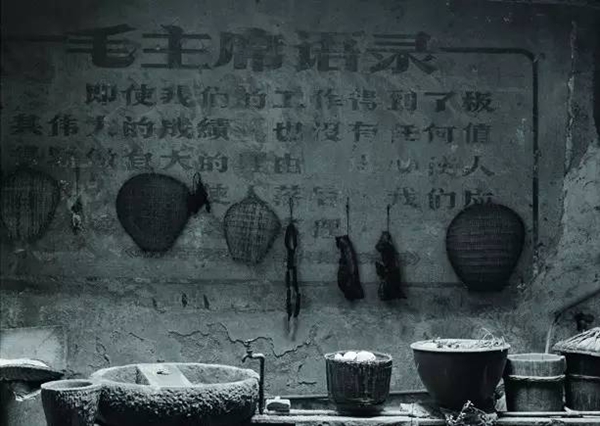 毛主席语录
即使我们的工作得到了极
其伟大的成績 也沒有任何值
得 傲自大的理由 虚心 人
使人落 我们应